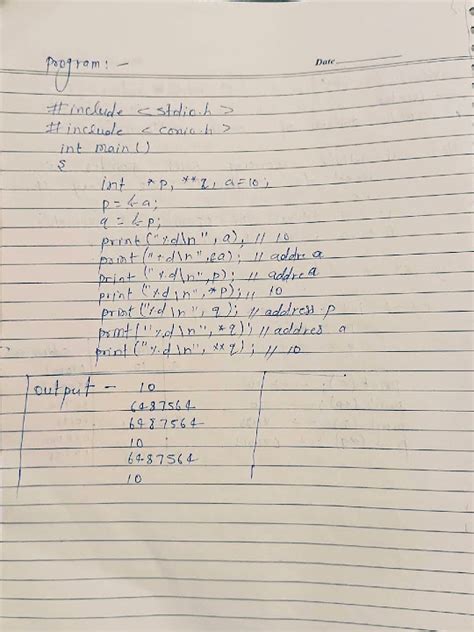 program : -
Date
#include <stdio.h>
#include <conio.h>
int main()
{
int *p, **q, a=10;
p=&a;
q = &p;
print("%d\n", a); // 10
print("%d\n", &a); // addre a
print("%d\n", p); // addre a
print("%d\n", *p); // 10
print("%d\n", q); // address p
print("%d\n", *q); // address a
print("%d\n", **q); // 10
output - 10
6487564
6487564
10
6487564
10